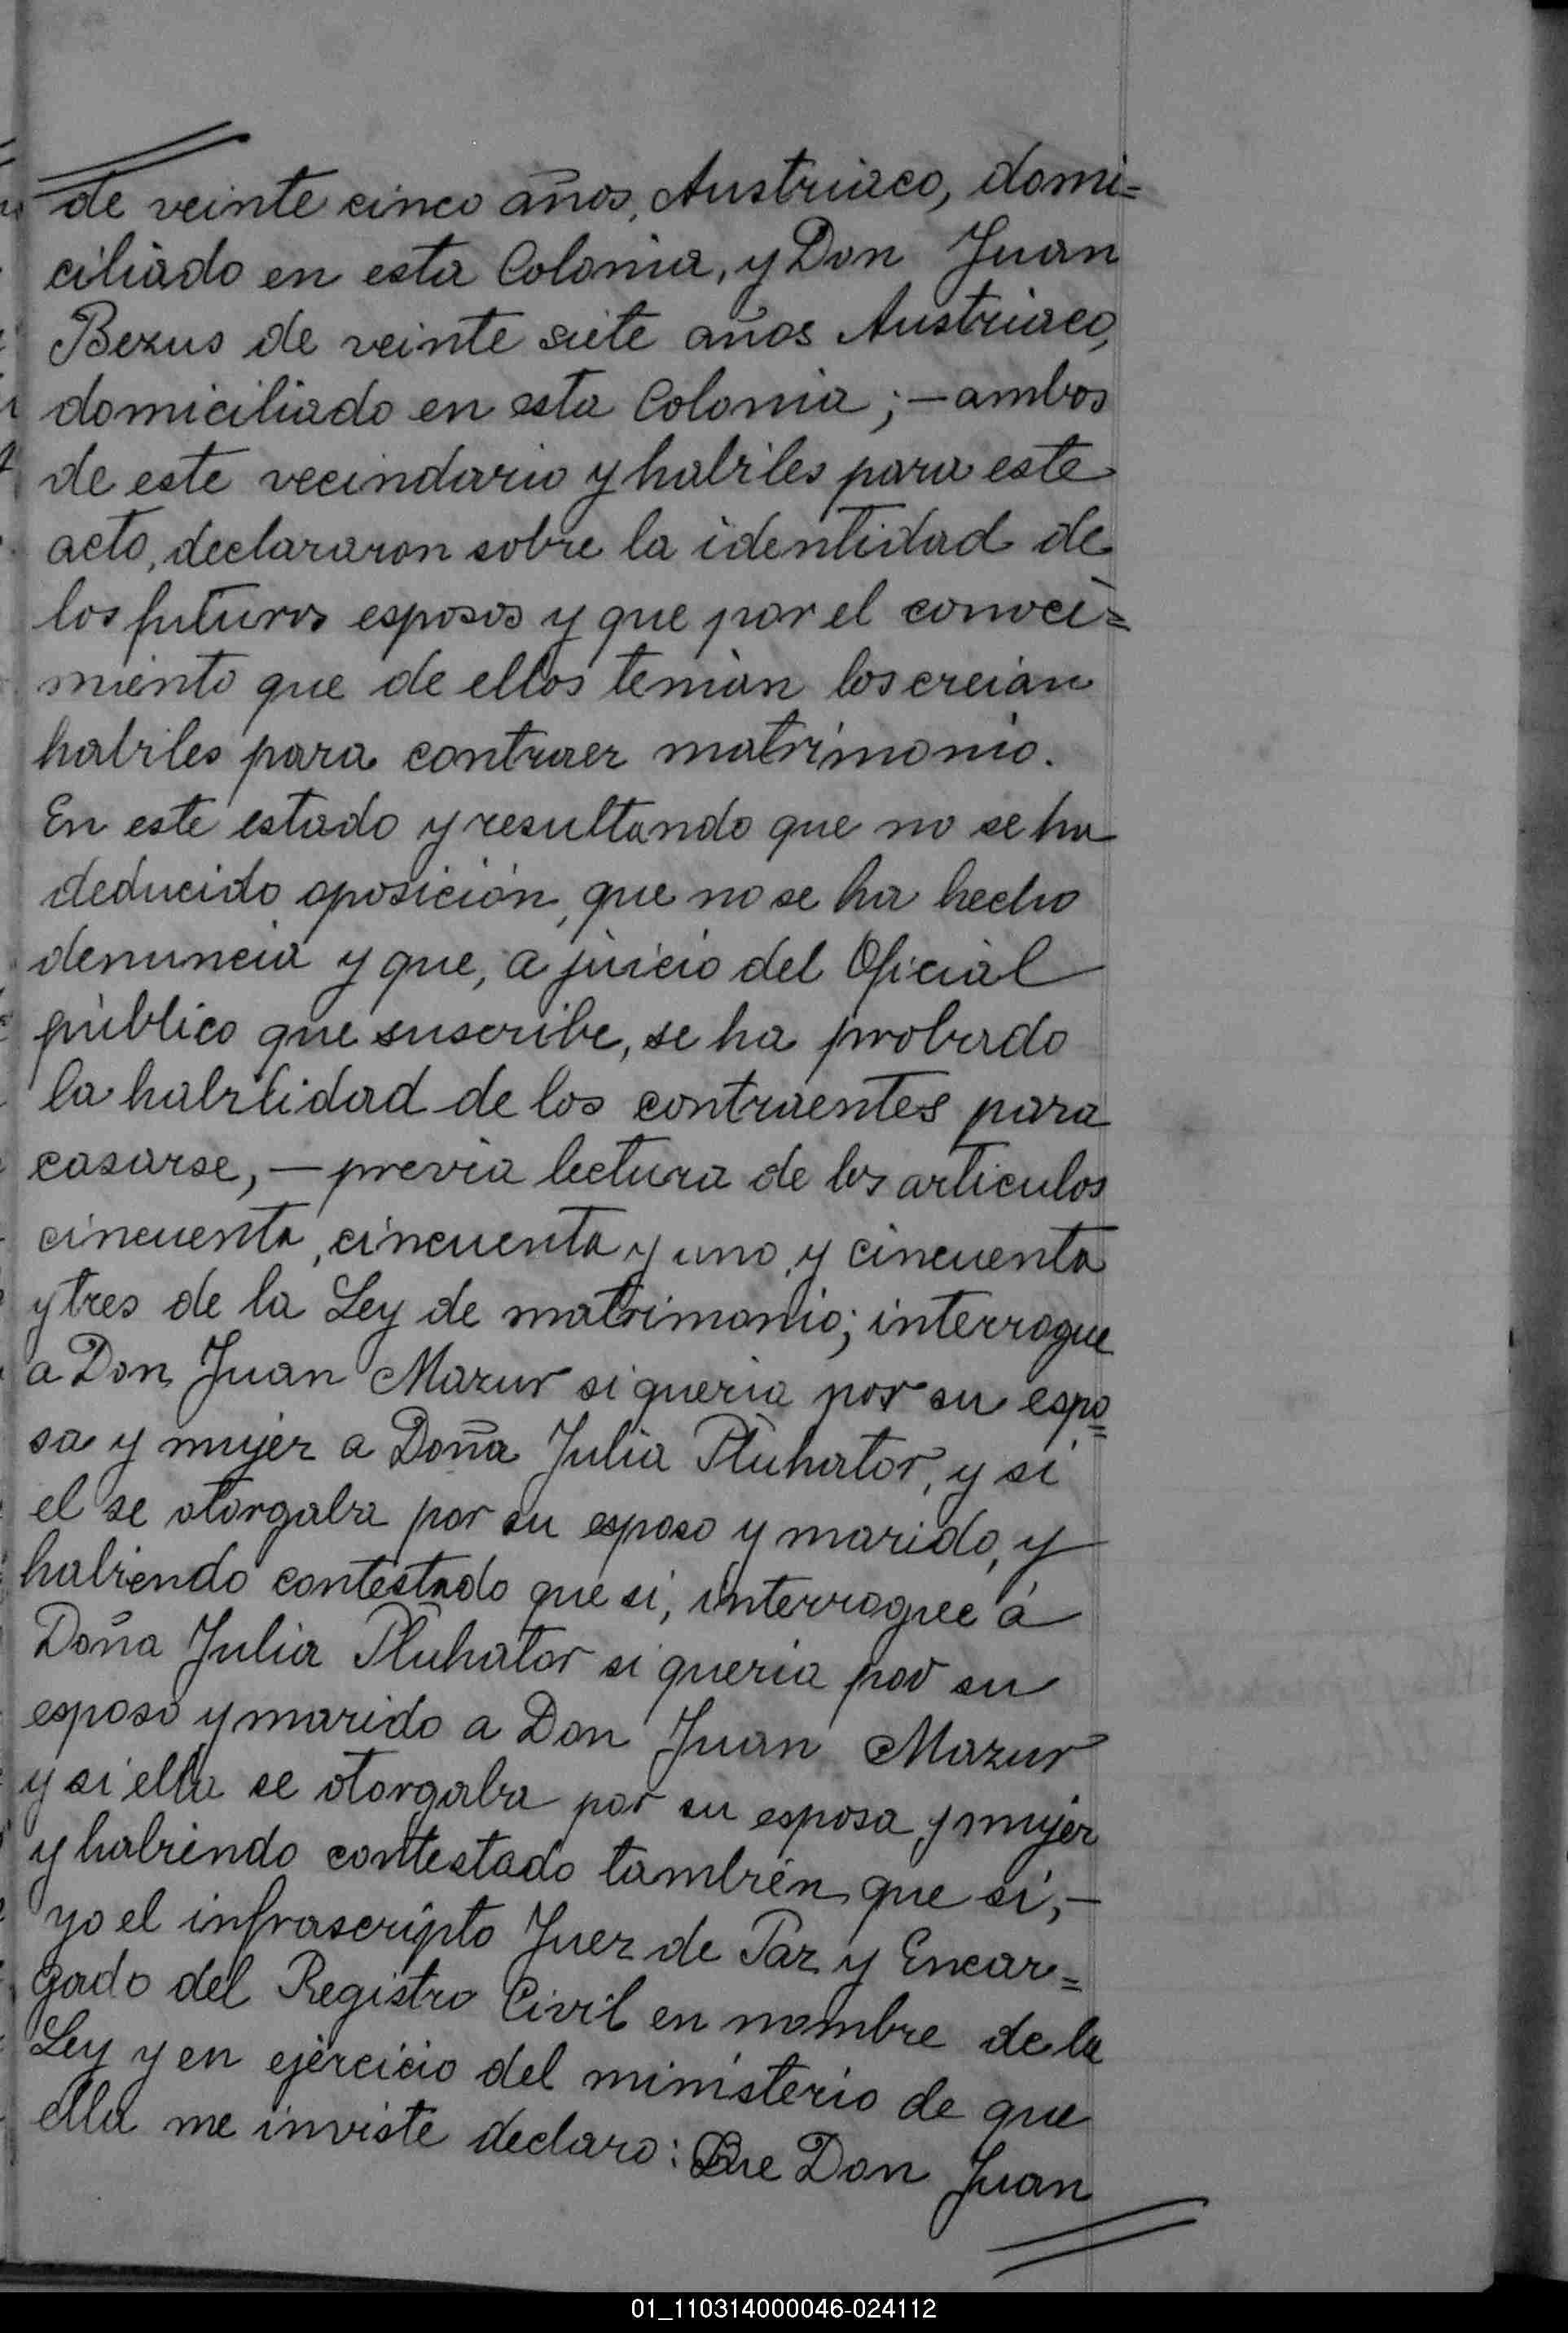 de veinte cinco años, Austriaco, domi=
ciliado en esta Colonia, y Don Juan
Bezus de veinte siete años Austriaco,
domiciliado en esta Colonia; — ambos
de este vecindario y habiles para este
acto, declararon sobre la identidad de
los futuros esposos y que por el conoci=
miento que de ellos tenian los creian
habiles para contraer matrimonio.
En este estado y resultando que no se ha
deducido oposición, que no se ha hecho
denuncia y que, a juicio del Oficial
público que suscribe, se ha probado
la habilidad de los contraentes para
casarse, — previa lectura de los articulos
cincuenta, cincuenta y uno, y cincuenta
y tres de la Ley de matrimonio; interrogue
a Don Juan Mazur si queria por su espo=
sa y mujer a Doña Julia Pluhator, y si
el se otorgaba por su esposo y marido, y
habiendo contestado que si, interrogue á
Doña Julia Pluhator si queria por su
esposo y marido a Don Juan Mazur
y si ella se otorgaba por su esposa y mujer
y habiendo contestado también que si, —
yo el infrascripto Juez de Paz y Encar=
gado del Registro Civil en nombre de la
Ley y en ejercicio del ministerio de que
ella me inviste declaro: Que Don Juan
01_110314000046-024112